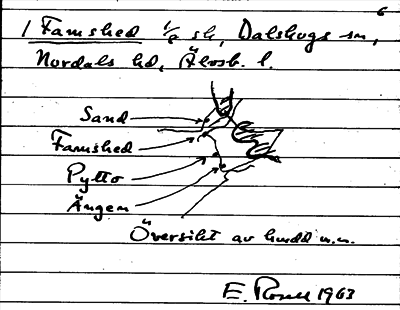 6
1 Famshed 1/8 sk, Dalskogs sn,
Nordals hd, Älvsb. l.
Sand
Famshed
Pytto
Ängen
Översikt av
E. 1963